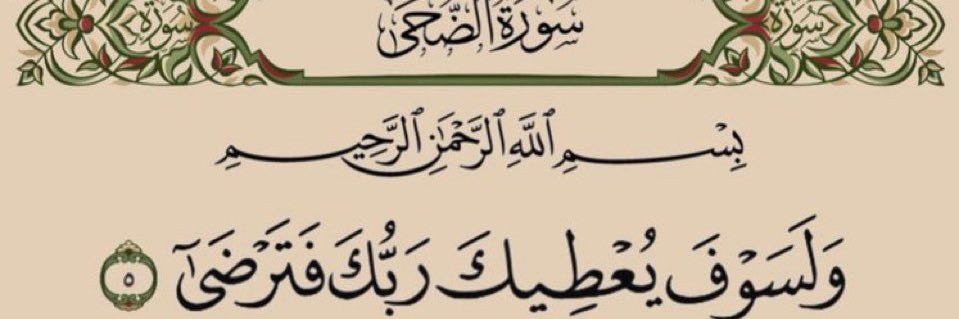 سُورَةُ الضُّحَىٰ
سورة سورة
بِسْمِ ٱللَّهِ ٱلرَّحْمَٰنِ ٱلرَّحِيمِ
وَلَسَوْفَ يُعْطِيكَ رَبُّكَ فَتَرْضَىٰٓ ٥